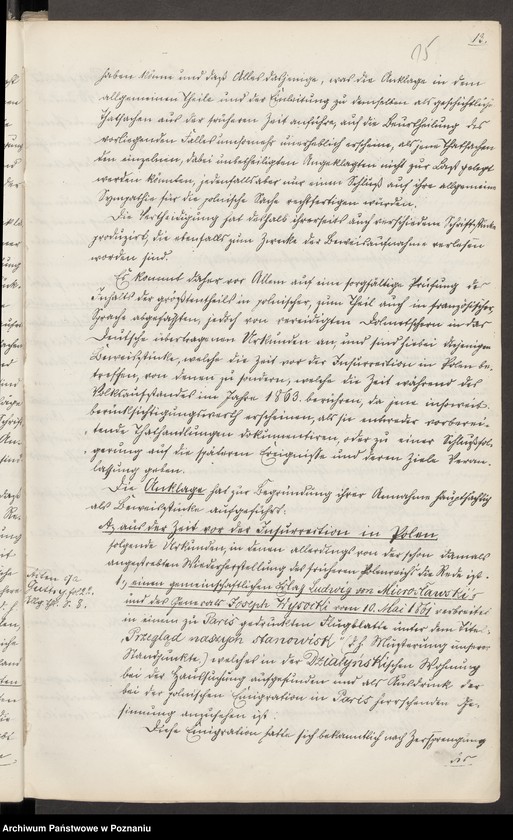 13.
15
haben könne und daß Alles dasjenige, was die Anklage in dem
allgemeinen Theile und der Einleitung zu demselben als geschichtliche
Thatsachen aus der frühern Zeit anführe, auf die Beurtheilung des
vorliegenden Falles umsomehr unerheblich erscheine, als jene Thatsachen
den einzelnen, dabei unbetheiligten Angeklagten nicht zur Last gelegt
werden könnten, jedenfalls aber nur einen Schluß auf ihre allgemeine
Sympathie für die polnische Sache rechtfertigen würden.
Die Vertheidigung hat deshalb ihrerseits auch verschiedene Schriftstücke
produzirt, die ebenfalls zum Zwecke der Beweisaufnahme verlesen
worden sind.
Es kommt daher vor Allem auf eine sorgfältige Prüfung des
Inhalts der größtentheils in polnischer, zum Theil auch in französischer
Sprache abgefaßten, jedoch von vereidigten Dolmetschern in das
Deutsche übertragenen Urkunden an, und sind hierbei diejenigen
Beweisstücke, welche die Zeit vor der Insurrection in Polen be-
treffen, von denen zu sondern, welche die Zeit während des
Volksaufstandes im Jahre 1863. berühren, da jene insoweit
berücksichtigungswerth erscheinen, als sie entweder vorberei-
tende Thathandlungen dokumentiren, oder zu einer Schlußfol-
gerung auf die späteren Ereignisse und deren Ziele Veran-
lassung geben.
Die Anklage hat zur Begründung ihrer Annahme hauptsächlich
als Beweisstücke aufgeführt:
A, aus der Zeit vor der Insurrection in Polen
folgende Urkunden, in denen allerdings von der schon damals
angestrebten Wiederherstellung des früheren Polenreichs die Rede ist.
1, einen gemeinschaftlichen Erlaß Ludwig von Mieroslawskis
und des Generals Joseph Wysocki vom 10. Mai 1861 verbreitet
in einem zu Paris gedruckten Flugblatte unter dem Titel
„Przegląd naszych stanowisk" d. h. Musterung unserer
Standpunkte) welches in der Działyńskischen Wohnung
bei der Haussuchung aufgefunden und als Ausdruck der
bei der polnischen Emigration in Paris herrschenden Ge-
sinnung anzusehen ist:
Diese Emigration hatte sich bekanntlich nach Zersprengung
des